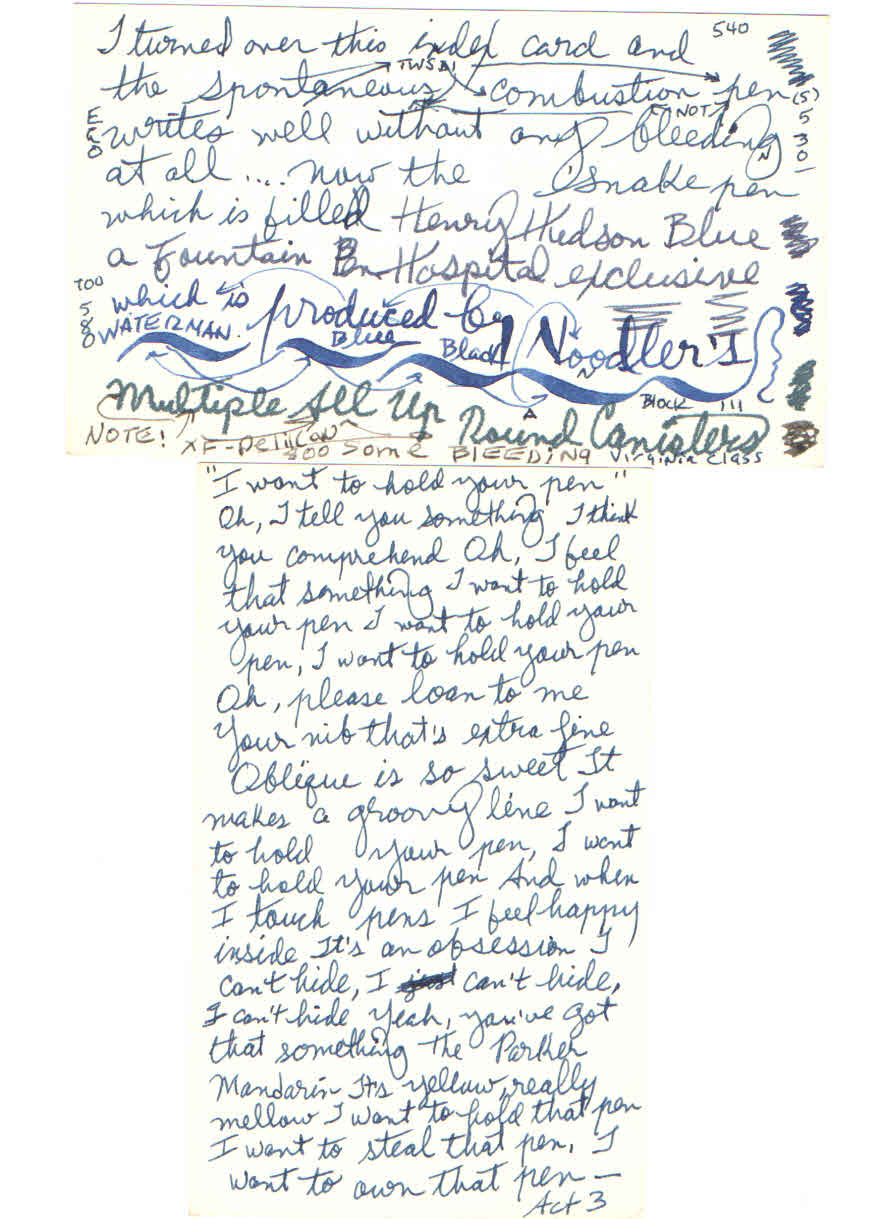 I turned over this index card and 540
TWSBI
the spontaneous combustion pen (5)
NOT
EGO writes well without any bleeding 5 3 0
at all .... now the snake pen
which is filled Henry Hudson Blue
a Fountain Pen Hospital exclusive
TOO 5 8 0
which is produced by Noodler's
WATERMAN. Blue Black
Block !!!
Multiple All Up Round Canisters
NOTE! XF-PELIKAN 400 Some BLEEDING Virginia Class
"I want to hold your pen"
Oh, I tell you something I think
you comprehend Oh, I feel
that something I want to hold
your pen I want to hold your
pen, I want to hold your pen
Oh, please loan to me
Your nib that's extra fine
Oblique is so sweet It
makes a groovy line I want
to hold your pen, I want
to hold your pen And when
I touch pens I feel happy
inside It's an obsession I
can't hide, I just can't hide,
I can't hide Yeah, you've got
that something The Parker
Mandarin It's yellow, really
mellow I want to hold that pen
I want to steal that pen, I
want to own that pen —
Act 3